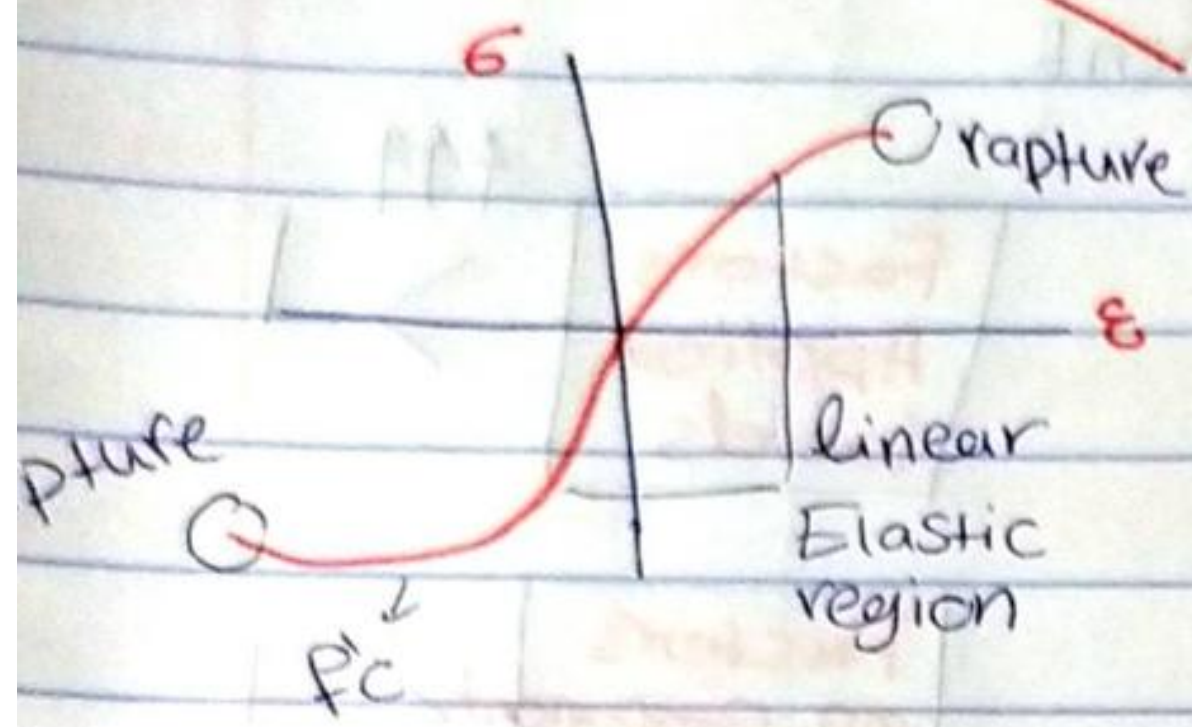 σ
rapture
ε
pture
linear
Elastic
region
f'c